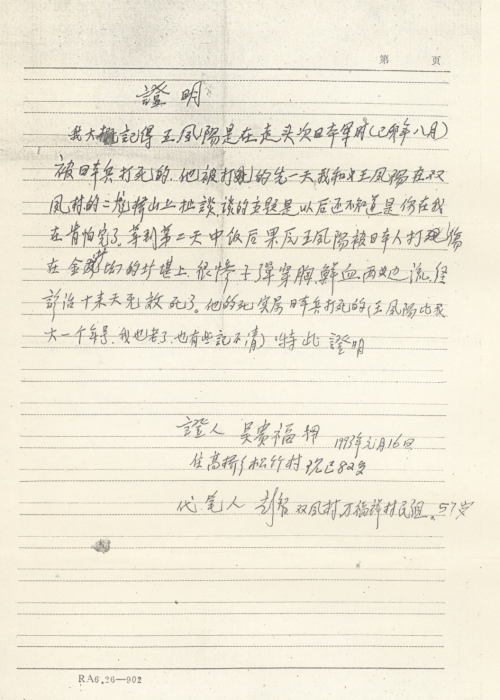 第 页
證明
我大概記得王凤陽是在走头次日本軍时(己卯年八月)
被日本兵打死的,他被打死的先一天我和王凤陽在双
凤村的二龙桥山上扯談,談的主題是以后还不知道是你在我
在肯怕完了,章到第二天中饭后果反王凤陽被日本人打现伤
在金 的圫堪上,很惨子彈穿胸鮮血两边流,经
診治十来天死 死了。他的死实属日本兵打死的(王凤陽比我
大一个年号,我也老了,也有些記不清)特此 證明
證人 吴賓福 1993年元月16日
住高桥乡松竹村 现已82岁
代笔人 彭 双凤村万福祥村民组,57岁
RA6.26—902